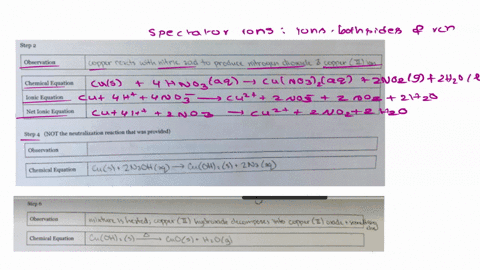 Spectator ions : Ions - both sides of rxn
Step 2
Observation copper reacts with nitric acid to produce nitrogen dioxide & copper (II) ion
Chemical Equation Cu(s) + 4HNO3(aq) → Cu(NO3)2(aq) + 2NO2(g) + 2H2O(l
Ionic Equation Cu + 4H+ + 4NO3- → Cu2+ + 2NO3- + 2NO2 + 2H2O
Net Ionic Equation Cu + 4H+ + 2NO3- → Cu2+ + 2NO2 + 2H2O
Step 4 (NOT the neutralization reaction that was provided)
Observation
Chemical Equation Cu(s) + 2NaOH(aq) → Cu(OH)2(s) + 2Na(aq)
Step 6
Observation mixture is heated; copper (II) hydroxide decomposes into copper (II) oxide +
Chemical Equation Cu(OH)2(s) Δ→ CuO(s) + H2O(g)